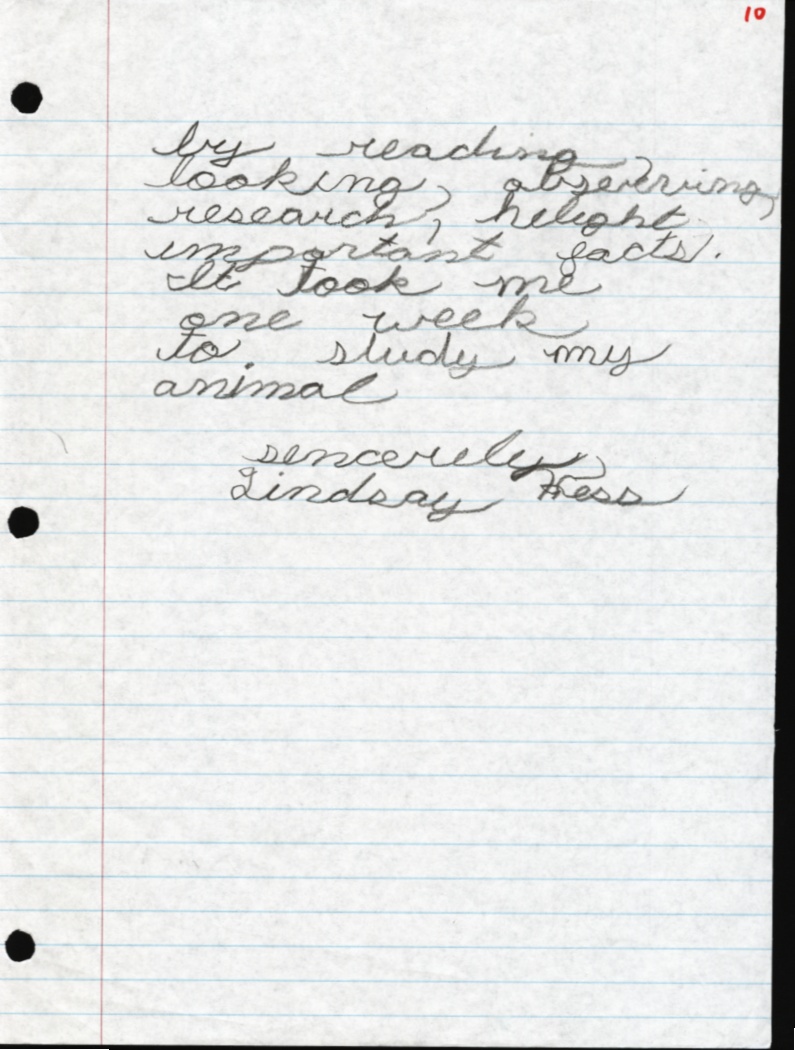 10
by reading,
looking, obserrving,
research, helight
important facts.
It took me
one week
to study my
animal
sencerely,
Lindsay Hess